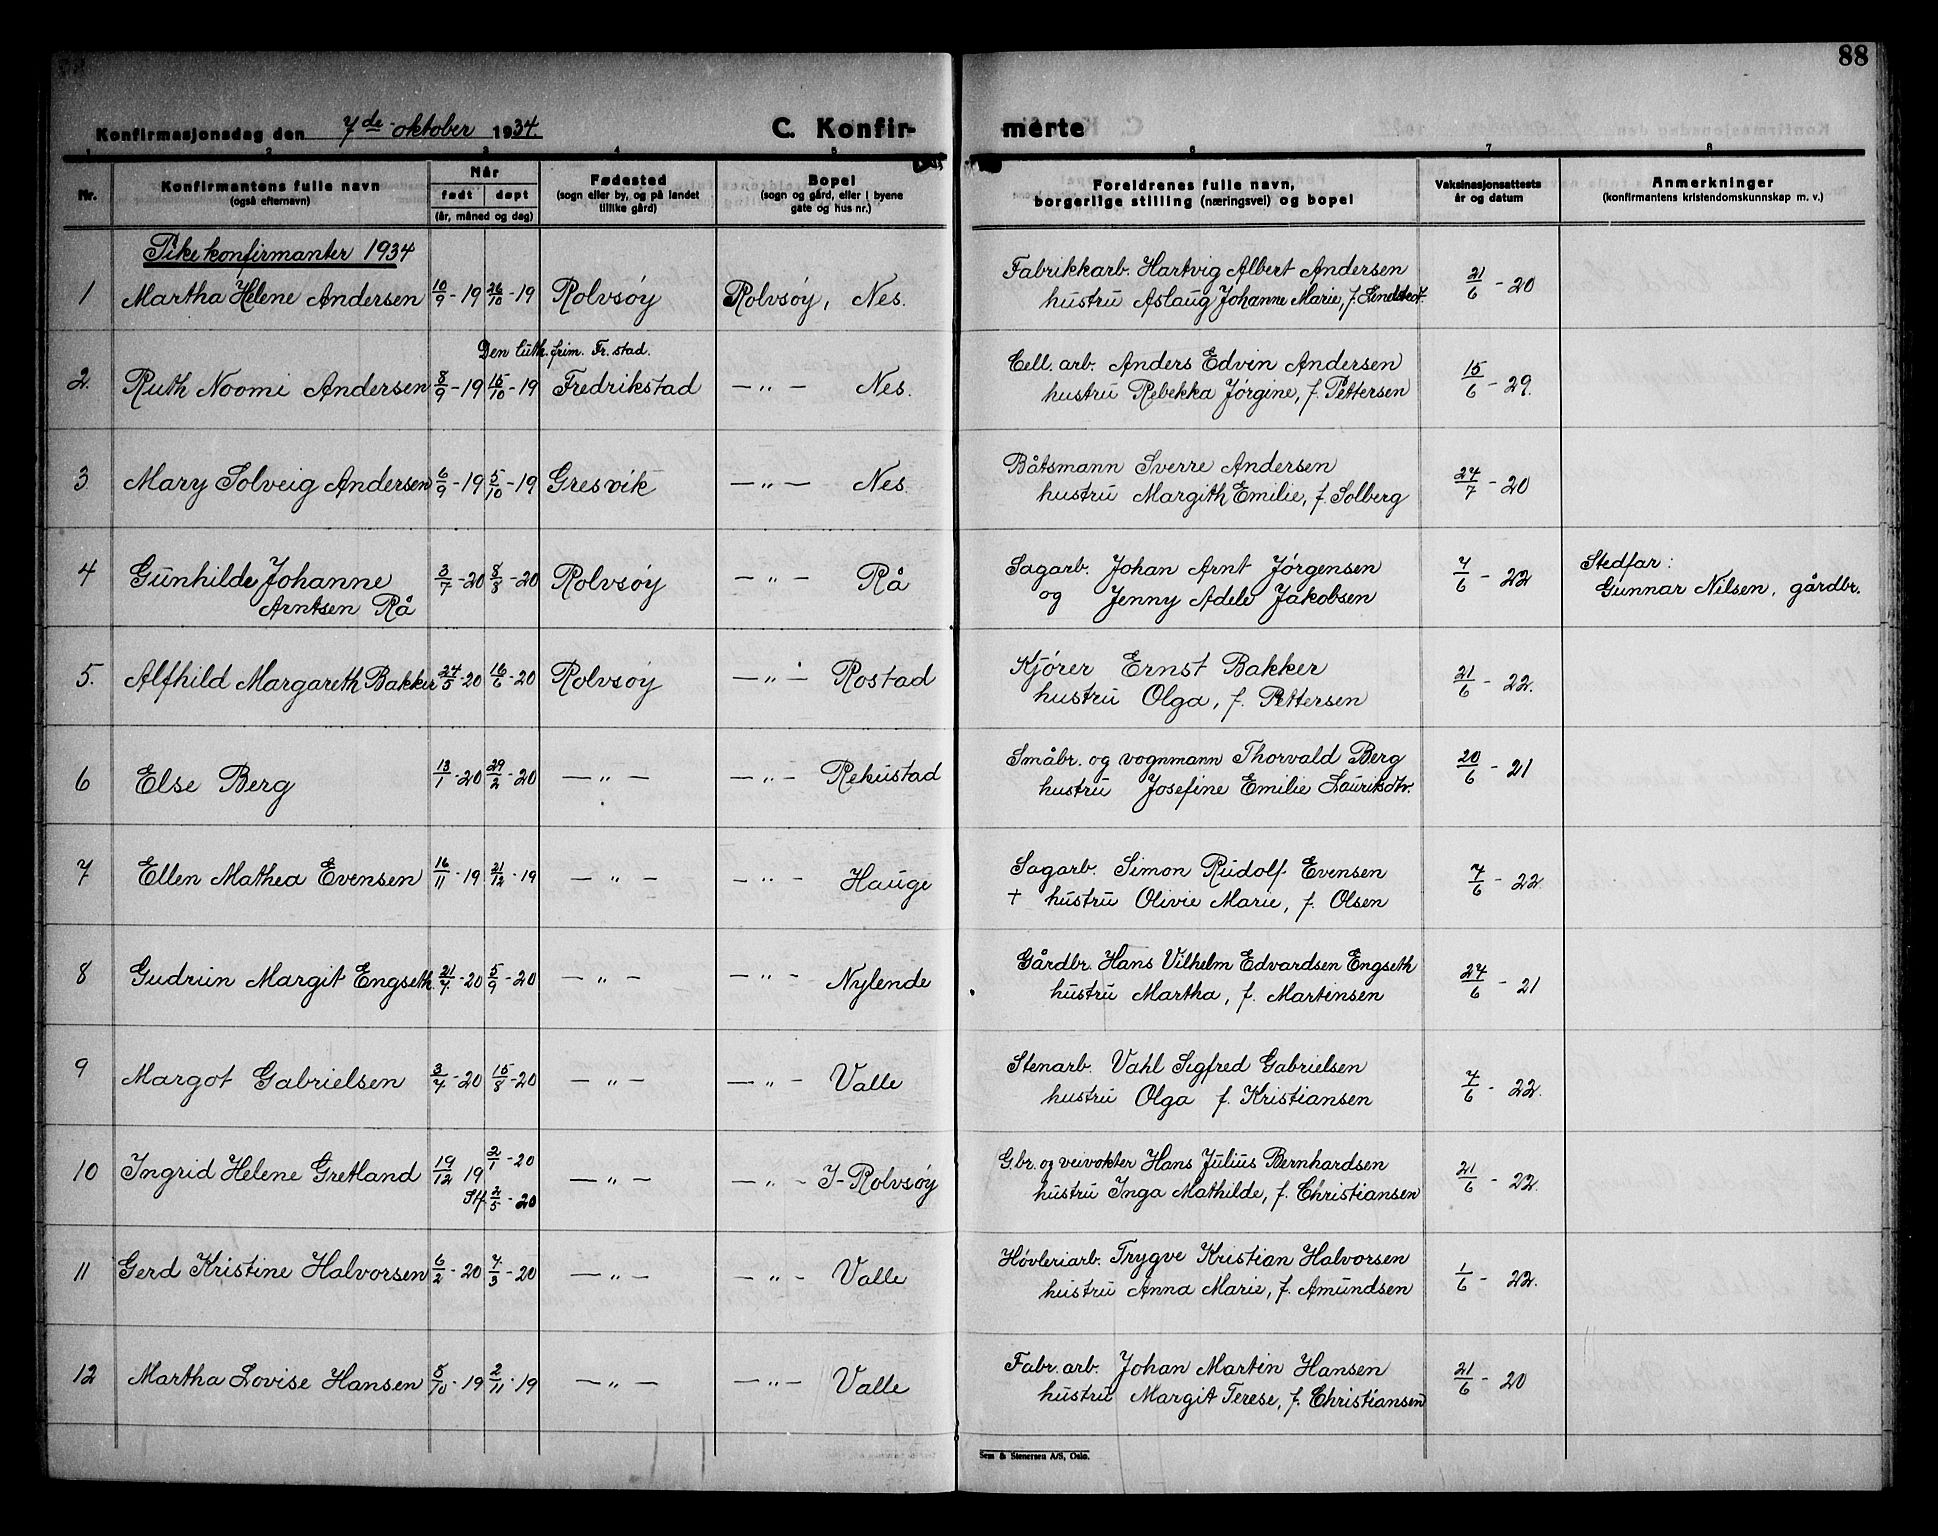 88
Konfirmasjonsdag den 7de oktober 1934. C. Konfirmerte
1 2 3 4 5 6 7 8
Nr.
Konfirmantens fulle navn
(også efternavn)
Når
født døpt
(år, måned og dag)
Fødested
(sogn eller by, og på landet
tillike gård)
Bopel
(sogn og gård, eller i byene
gate og hus nr.)
Foreldrenes fulle navn,
borgerlige stilling (næringsvei) og bopel
Vaksinasjonsattests
år og datum
Anmerkninger
(konfirmantens kristendomskunnskap m. v.)
Pikekonfirmanter 1934
Fabrikkarb. Hartvig Albert Andersen
1 Martha Helene Andersen 10/9 - 19 26/10 - 19 Rolvsøy Rolvsøy, Nes. 21/6 - 20
hustru Aslaug Johanne Marie, f.
Den luth. frim. Fr.stad.
Cell. arb. Anders Edvin Andersen
2. Ruth Noomi Andersen 8/9 - 19 15/10 - 19 Fredrikstad — " — Nes. 15/6 - 29.
hustru Rebekka Jørgine, f. Pettersen
Båtsmann Sverre Andersen
3 Mary Solveig Andersen 6/9 - 19 5/10 - 19 Gresvik — " — Nes. 24/7 - 20
hustru Margith Emilie, f. Solberg
4 Gunhilde Johanne 3/7 - 20 8/8 - 20 Rolvsøy — " — Rå Sagarb. Johan Arnt Jørgensen 7/6 - 22 Stedfar:
Arntsen Rå og Jenny Adele Jakobsen Gunnar Nilsen, gårdbr.
Kjører Ernst Bakker
5. Alfhild Margareth Bakker 24/5 - 20 16/6 - 20 Rolvsøy — " — Rostad 21/6 - 22.
hustru Olga, f. Pettersen
Småbr. og vognmann Thorvald Berg
6 Else Berg 13/1 - 20 29/2 - 20 — " — — " — Rekustad 20/6 - 21
hustru Josefine Emilie Lauriksdtr.
Sagarb. Simon Rudolf Evensen
7 Ellen Mathea Evensen 16/11 - 19 21/12 - 19 — " — — " — Hauge 7/6 - 22.
+ hustru Olivie Marie, f. Olsen
Gårdbr. Hans Vilhelm Edvardsen Engseth
8 Gudrun Margit Engseth 21/7 - 20 5/9 - 20 — " — — " — Nylende 24/6 - 21
hustru Martha, f. Martinsen
Stenarb. Vahl Sigfred Gabrielsen
9 Margot Gabrielsen 3/7 - 20 15/8 - 20 — " — — " — Valle 7/6 - 22.
hustru Olga f. Kristiansen
G.br. og veivokter Hans Julius Bernhardsen
10 Ingrid Helene Gretland 19/12 19 2/1 - 20 — " — — " — J-Rolvsøy 21/6 - 22.
St. 2/5 - 20 hustru Inga Mathilde, f. Christiansen
Høvleriarb. Trygve Kristian Halvorsen
11 Gerd Kristine Halvorsen 6/2 - 20 7/3 - 20 — " — — " — Valle 1/6 - 22.
hustru Anna Marie, f. Amundsen
Fabr. arb. Johan Martin Hansen
12 Martha Lovise Hansen 5/10 - 19 2/11 - 19 — " — — " — Valle 21/6 - 20
hustru Margit Terese, f. Christiansen
Sem & Stenersen A/S, Oslo.